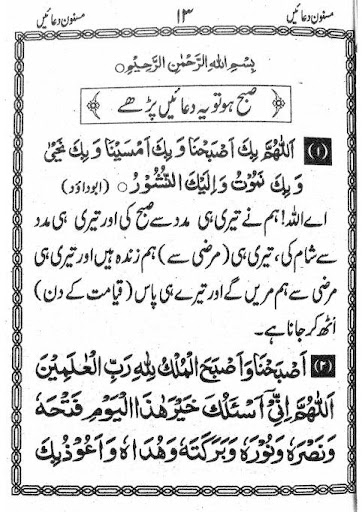 مسنون دعائیں ۱۳ مسنون دعائیں
بِسْمِ اللهِ الرَّحْمٰنِ الرَّحِيْمِ ○
صبح ہو تو یہ دعائیں پڑھے
(۱) اَللّٰهُمَّ بِكَ اَصْبَحْنَا وَ بِكَ اَمْسَيْنَا وَ بِكَ نَحْيٰى
وَ بِكَ نَمُوْتُ وَ اِلَيْكَ النُّشُوْرُ ○ (ابوداؤد)
اے اللہ! ہم نے تیری ہی مدد سے صبح کی اور تیری ہی مدد
سے شام کی، تیری ہی (مرضی سے) ہم زندہ ہیں اور تیری ہی
مرضی سے ہم مریں گے اور تیرے ہی پاس (قیامت کے دن)
اُٹھ کر جانا ہے۔
(۲) اَصْبَحْنَا وَ اَصْبَحَ الْمُلْكُ لِلّٰهِ رَبِّ الْعٰلَمِيْنَ
اَللّٰهُمَّ اِنِّيْ اَسْئَلُكَ خَيْرَ هٰذَا الْيَوْمِ فَتْحَهٗ
وَ نَصْرَهٗ وَ نُوْرَهٗ وَ بَرَكَتَهٗ وَ هُدَاهُ وَ اَعُوْذُ بِكَ